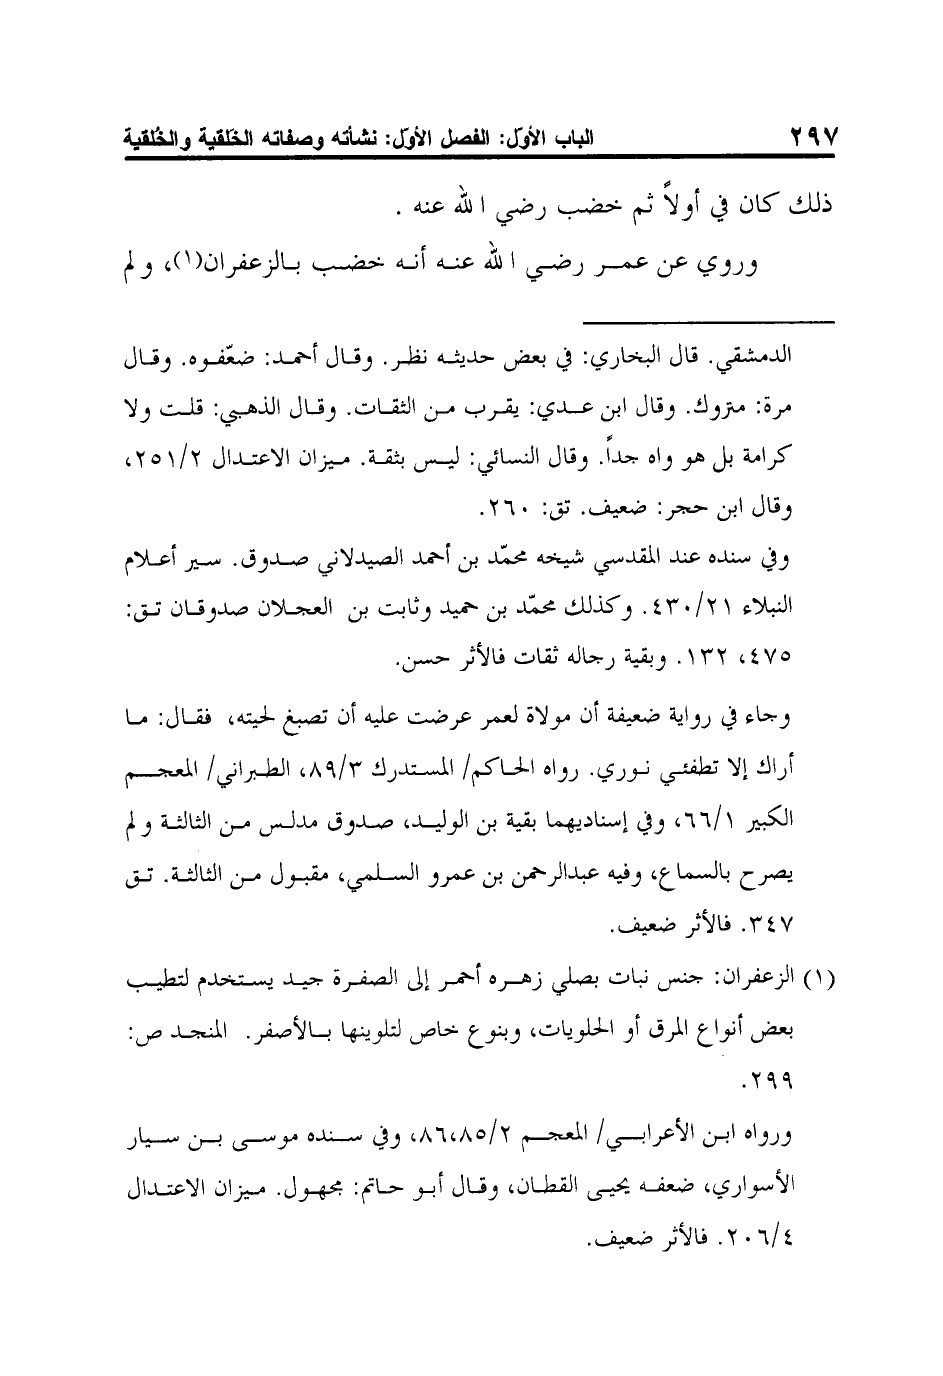 ٢٩٧ الباب الأوّل: الفصل الأوّل: نشأته وصفاته الخَلقية والخُلقية
ذلك كان في أولاً ثم خضب رضي الله عنه .
وروي عن عمر رضي الله عنه أنه خضب بالزعفران(١)، ولم
الدمشقي. قال البخاري: في بعض حديثه نظر. وقال أحمد: ضعّفوه. وقال
مرة: متروك. وقال ابن عدي: يقرب من الثقات. وقال الذهبي: قلت ولا
كرامة بل هو واه جداً. وقال النسائي: ليس بثقة. ميزان الاعتدال ٢٥١/٢،
وقال ابن حجر: ضعيف. تق: ٢٦٠.
وفي سنده عند المقدسي شيخه محمّد بن أحمد الصيدلاني صدوق. سير أعلام
النبلاء ٤٣٠/٢١. وكذلك محمّد بن حميد وثابت بن العجلان صدوقان تق:
٤٧٥، ١٣٢. وبقية رجاله ثقات فالأثر حسن.
وجاء في رواية ضعيفة أن مولاة لعمر عرضت عليه أن تصبغ لحيته، فقال: ما
أراك إلا تطفئي نوري. رواه الحاكم/ المستدرك ٨٩/٣، الطبراني/ المعجم
الكبير ٦٦/١، وفي إسناديهما بقية بن الوليد، صدوق مدلس من الثالثة ولم
يصرح بالسماع، وفيه عبدالرحمن بن عمرو السلمي، مقبول من الثالثة. تق
٣٤٧. فالأثر ضعيف.
(١) الزعفران: جنس نبات بصلي زهره أحمر إلى الصفرة جيد يستخدم لتطيب
بعض أنواع المرق أو الحلويات، وبنوع خاص لتلوينها بالأصفر. المنجد ص:
٢٩٩.
ورواه ابن الأعرابي/ المعجم ٨٦،٨٥/٢، وفي سنده موسى بن سيار
الأسواري، ضعفه يحيى القطان، وقال أبو حاتم: مجهول. ميزان الاعتدال
٢٠٦/٤. فالأثر ضعيف.